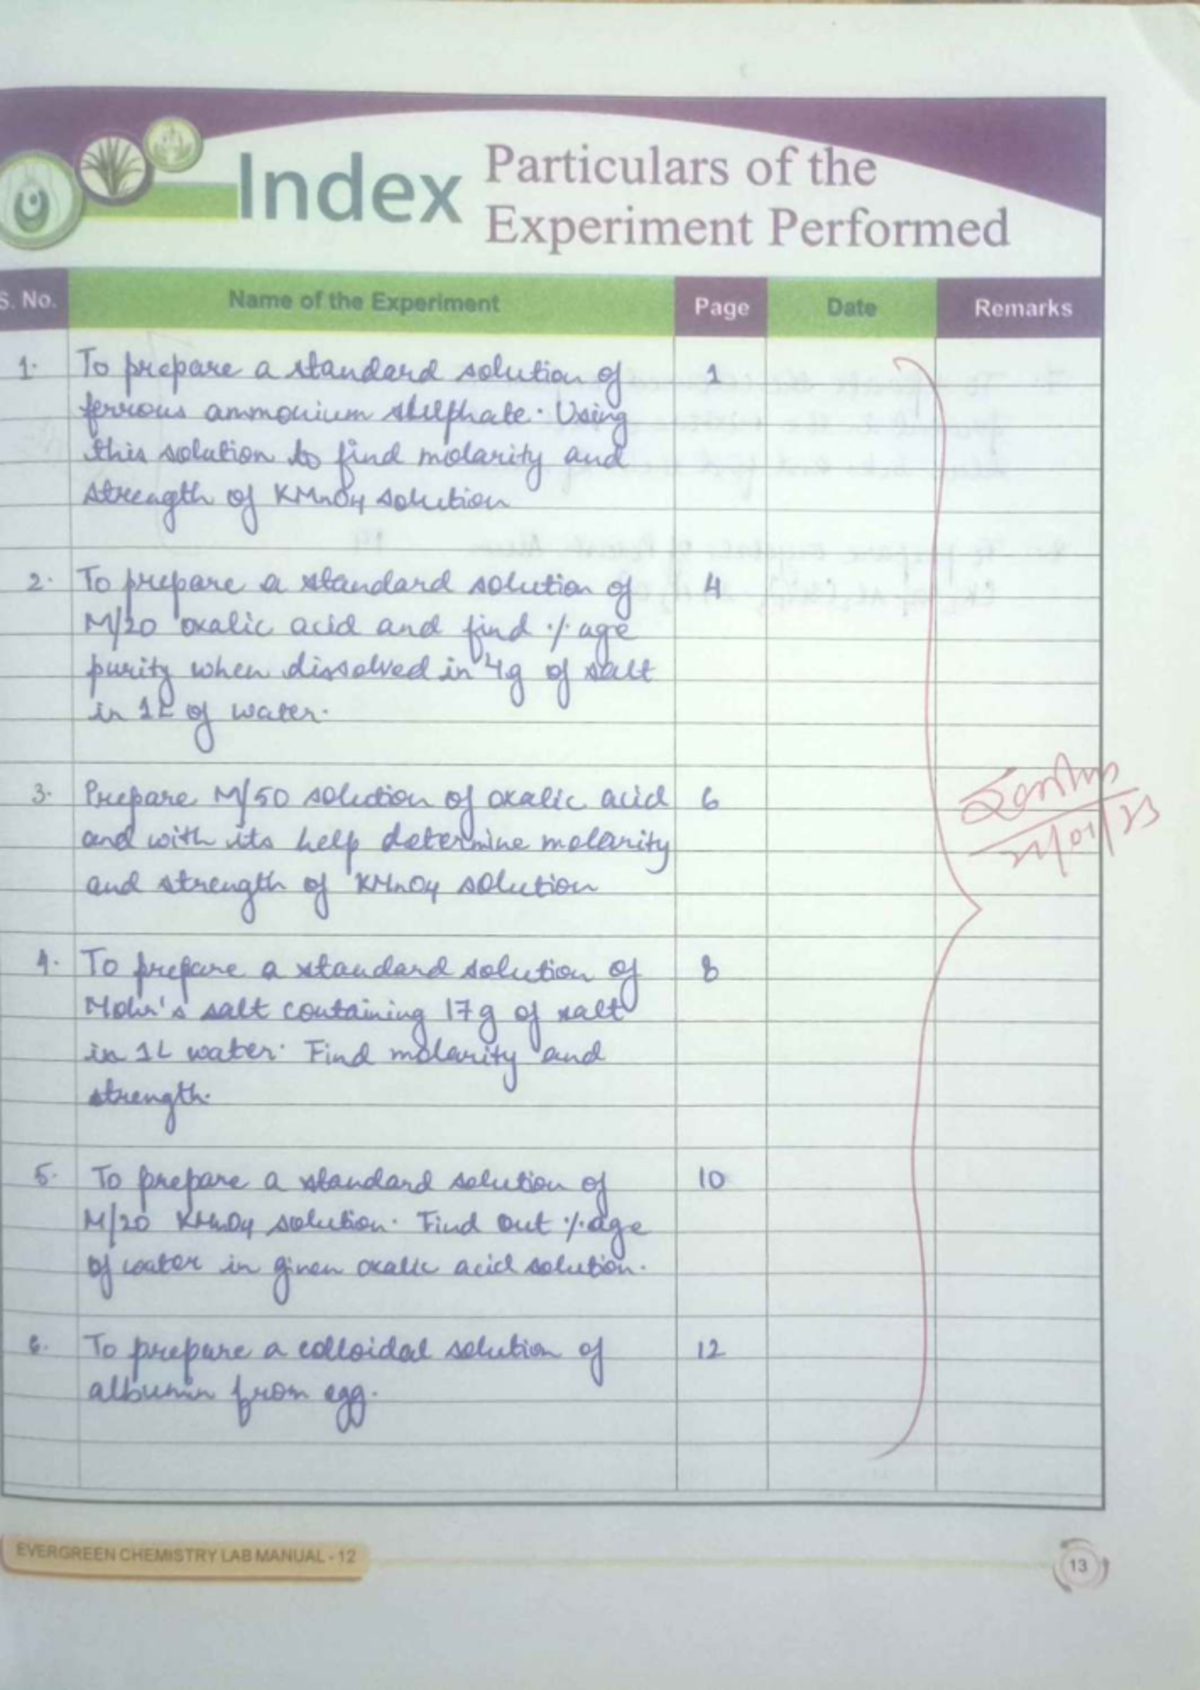 Index
Particulars of the
Experiment Performed
S. No. Name of the Experiment Page Date Remarks
1. To prepare a standard solution of 1
ferrous ammonium sulphate. Using
this solution to find molarity and
strength of KMnO4 solution
2. To prepare a standard solution of 4
M/20 oxalic acid and find %age
purity when dissolved in 4g of salt
in 1L of water.
3. Prepare M/50 solution of oxalic acid 6
and with its help determine molarity
and strength of KMnO4 solution
4. To prepare a standard solution of 8
Mohr's salt containing 17g of salt
in 1L water. Find molarity and
strength.
5. To prepare a standard solution of 10
M/20 KMnO4 solution. Find out %age
of water in given oxalic acid solution.
6. To prepare a colloidal solution of 12
albumin from egg.
EVERGREEN CHEMISTRY LAB MANUAL - 12
13